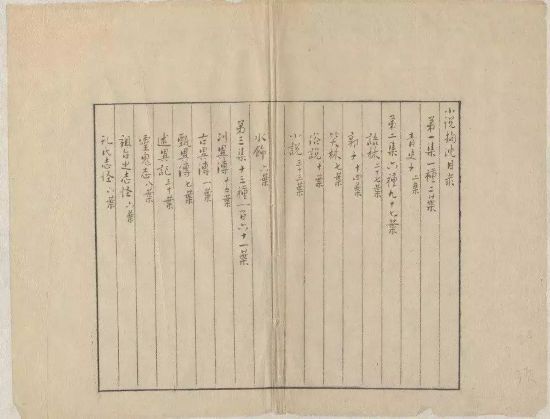 小說鉤沈目录
第一集一種二葉
青史子 二葉
第二集六種九十七葉
語林 二十七葉
郭子 十四葉
笑林 七葉
俗說 十葉
小說 三十三葉
水飾 六葉
第三集十三種一百六十一葉
列異傳 十五葉
古異傳 一葉
甄異傳 七葉
述異記 三十葉
靈鬼志 八葉
祖台之志怪 六葉
孔氏志怪 六葉